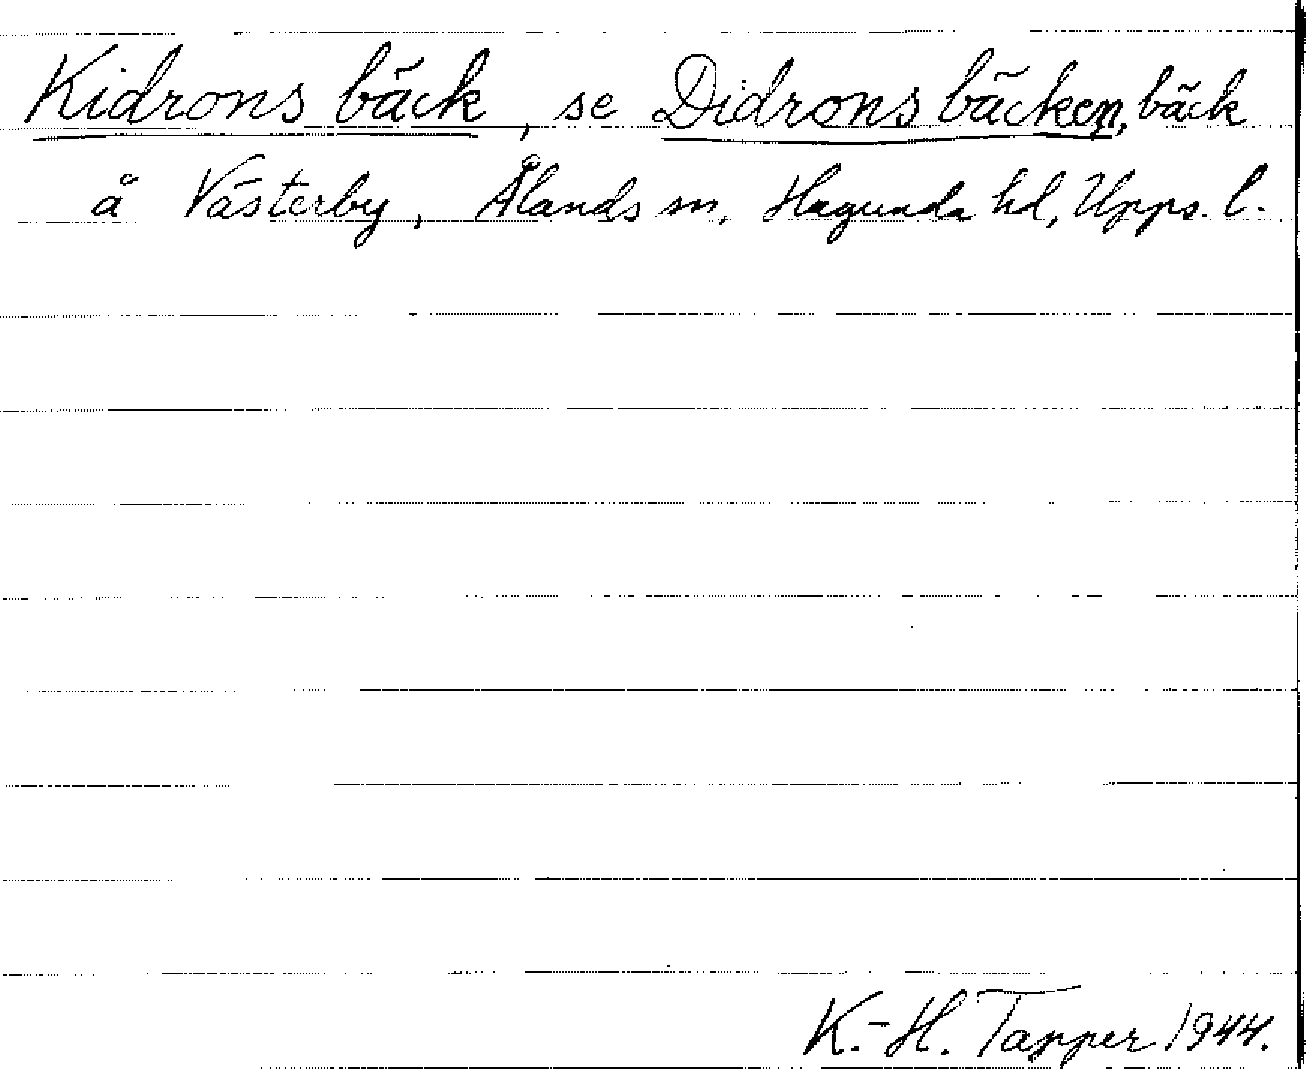 Kidrons bäck, se Didrons bäcken, bäck
å Västerby, Ålands sn, Hagunda hd, Upps. l.
K.-H. Tapper 1944.